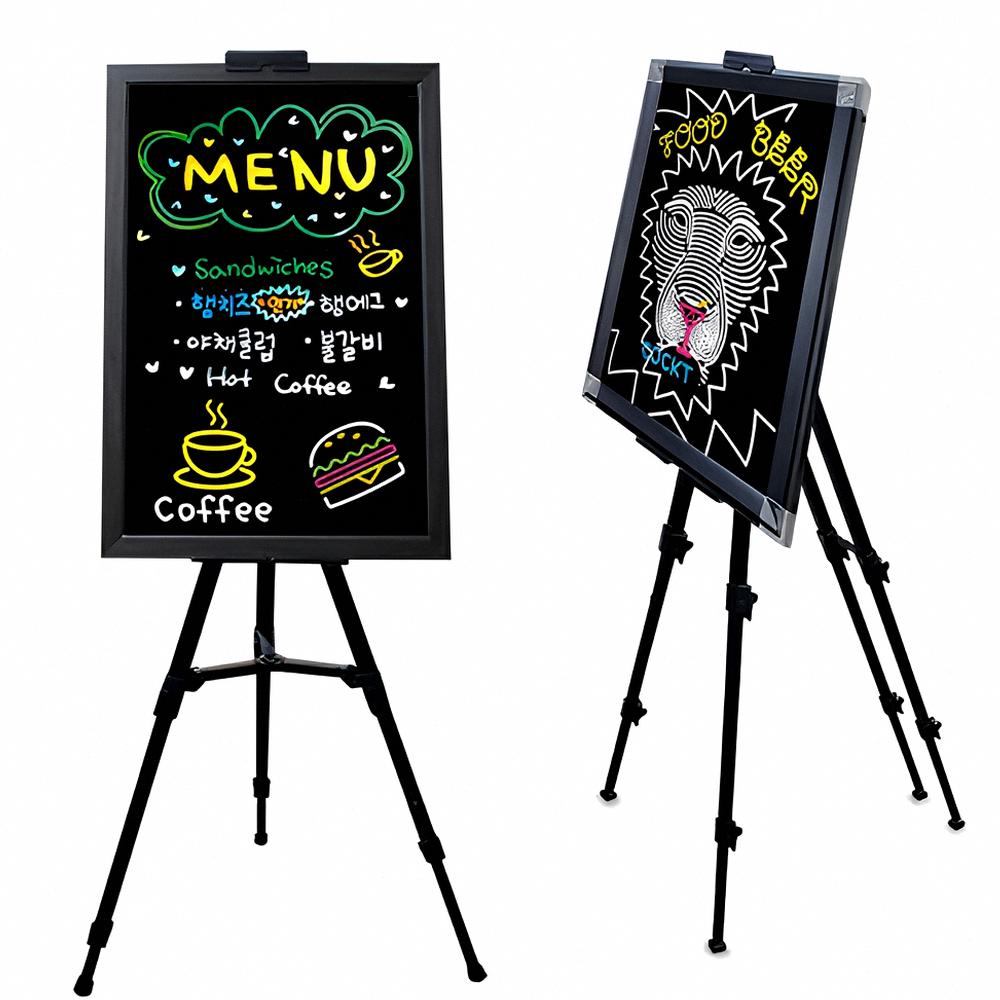 MENU
Sandwiches
· 햄치즈 인기 햄에그
· 야채클럽 · 불갈비
Hot Coffee
Coffee
FOOD BEER
COCKT